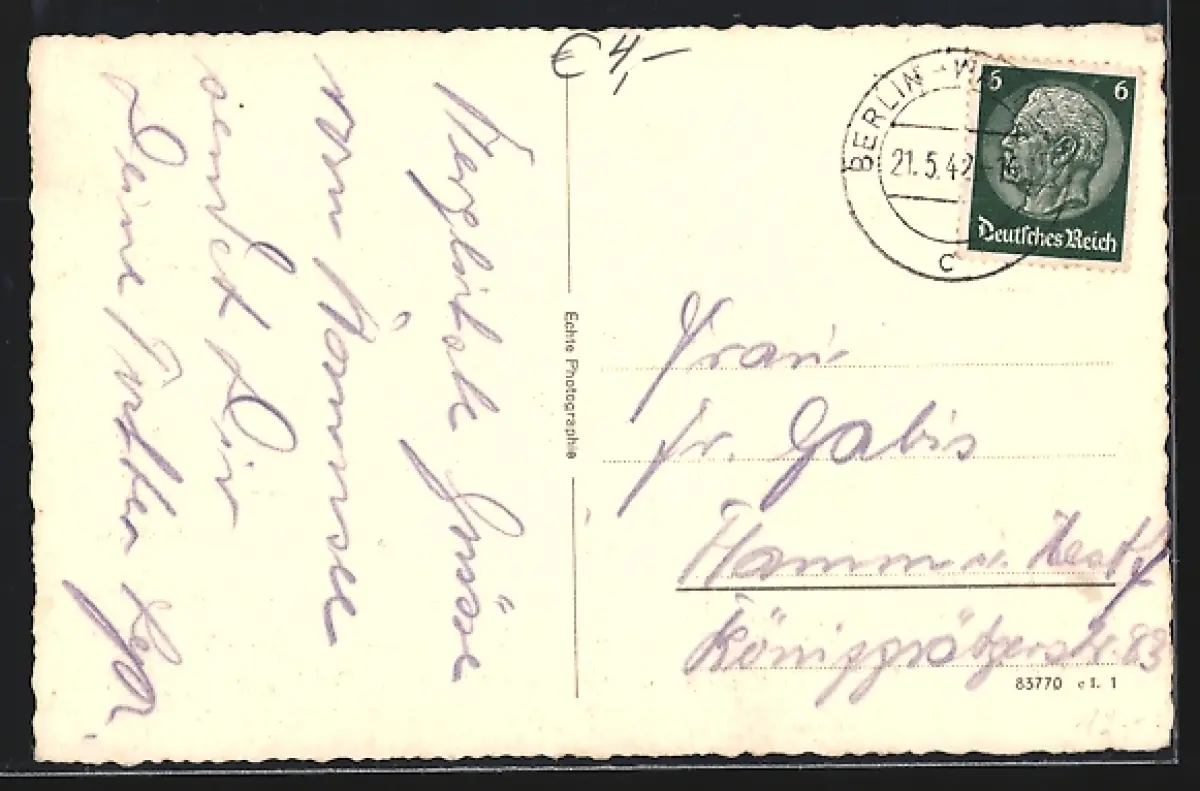 € 4,-
BERLIN-W
21.5.42.-16
c
6 6
Deutsches Reich
Herzliche Grüsse
vom
sendet Dir
Deine
Echte Photographie
Frau
Fr. Gabis
Hamm i. Westf
Königgrätzerstr. 83
83770 c I. 1